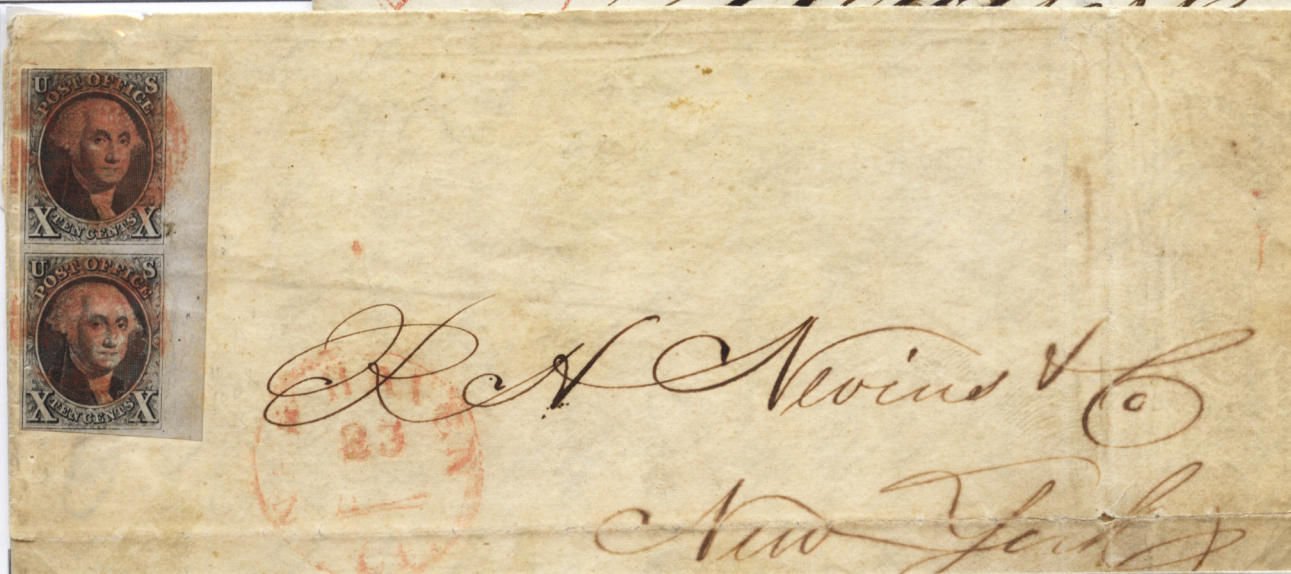 U S
POST OFFICE
X TEN CENTS X
U S
POST OFFICE
X TEN CENTS X
R H Nevins & Co
23
New York